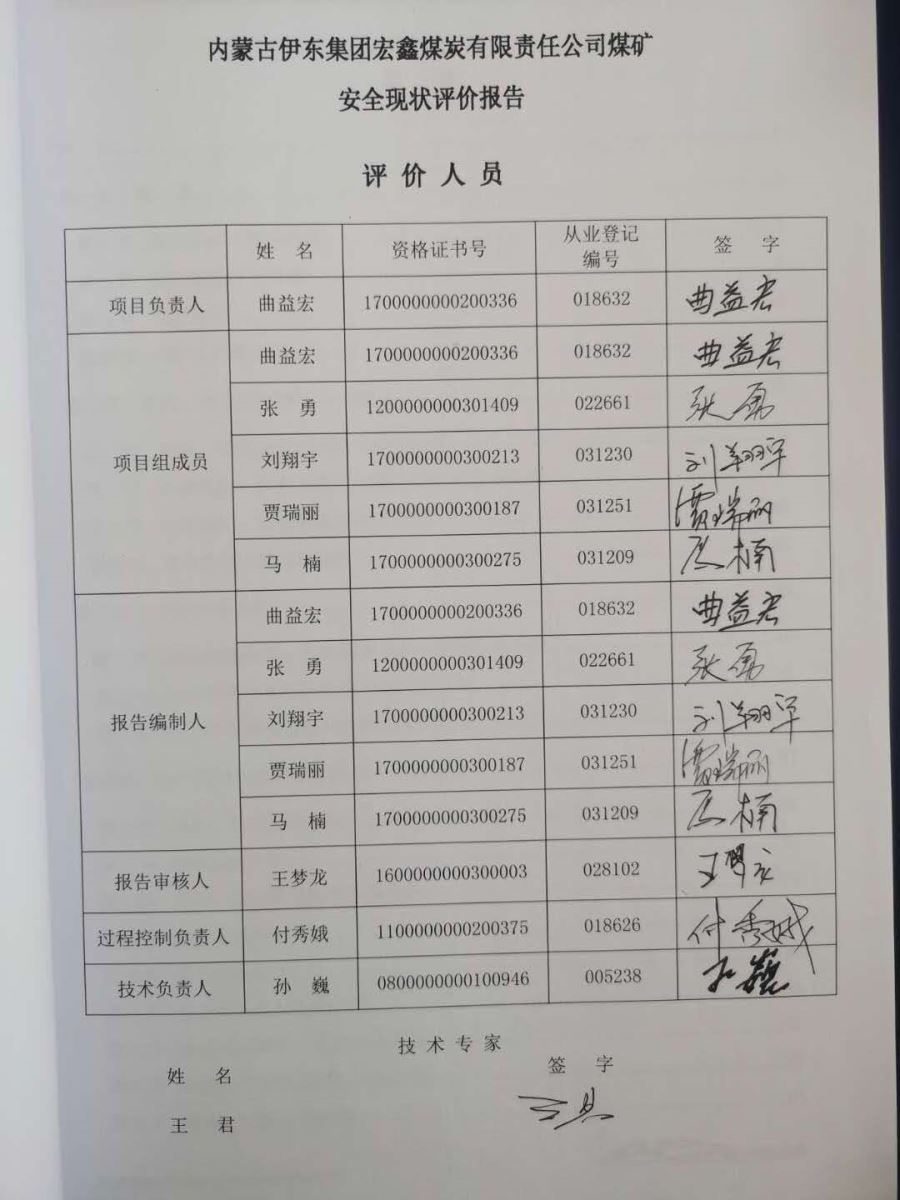 内蒙古伊东集团宏鑫煤炭有限责任公司煤矿
安全现状评价报告
评价人员
姓 名 资格证书号 从业登记编号 签 字
项目负责人 曲益宏 1700000000200336 018632 曲益宏
项目组成员 曲益宏 1700000000200336 018632 曲益宏
张 勇 1200000000301409 022661 张勇
刘翔宇 1700000000300213 031230 刘翔宇
贾瑞丽 1700000000300187 031251 贾瑞丽
马 楠 1700000000300275 031209 马楠
报告编制人 曲益宏 1700000000200336 018632 曲益宏
张 勇 1200000000301409 022661 张勇
刘翔宇 1700000000300213 031230 刘翔宇
贾瑞丽 1700000000300187 031251 贾瑞丽
马 楠 1700000000300275 031209 马楠
报告审核人 王梦龙 1600000000300003 028102 王梦龙
过程控制负责人 付秀娥 1100000000200375 018626 付秀娥
技术负责人 孙 巍 0800000000100946 005238 孙巍
技术专家
姓 名 签 字
王 君 王君